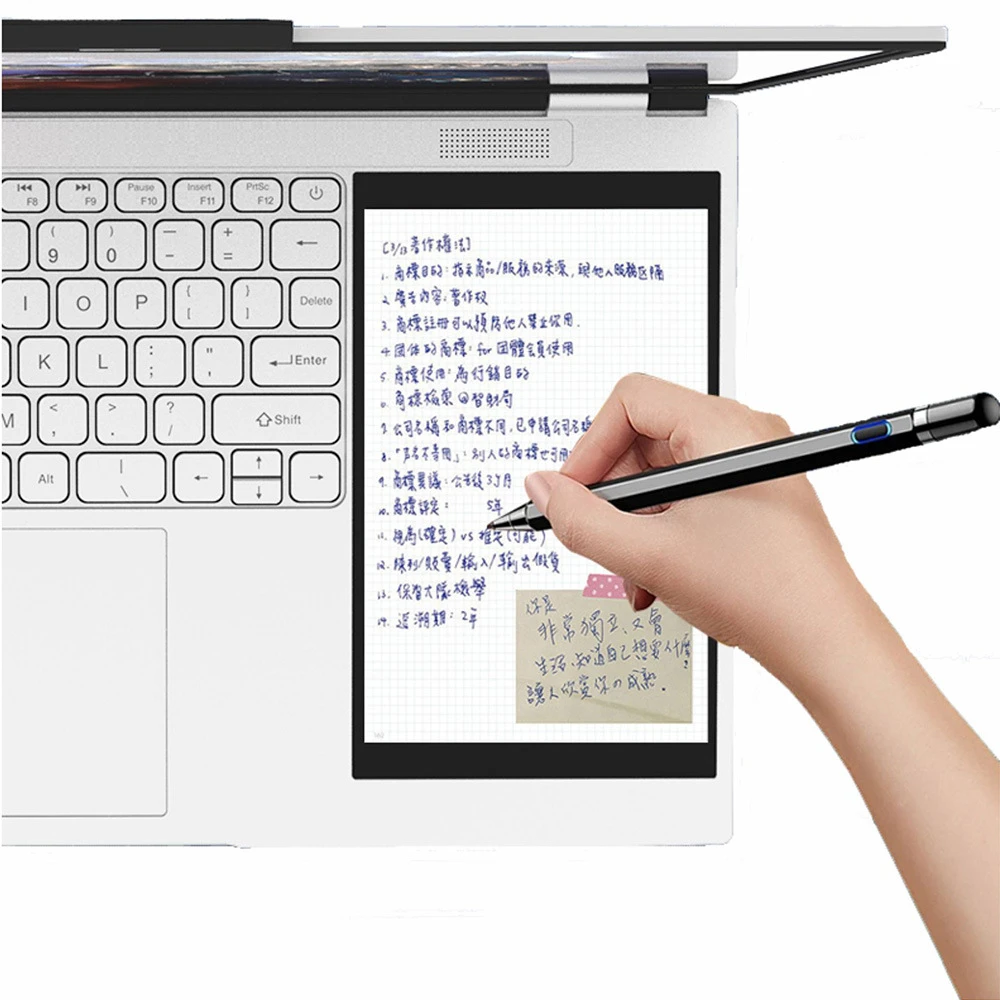 F8
F9
Pause
F10
Insert
F11
PrtSc
F12
(
9
)
0
_
-
+
=
I
O
P
{
[
}
]
Delete
K
L
:
;
"
'
Enter
M
<
,
>
.
?
/
Shift
Alt
|
\
[3/13 著作權法]
1. 商標目的:指示商品/服務的來源,跟他人服務區隔
2. 廣告內容:著作权
3. 商標註冊可以預防他人禁止你用.
4. 団体的商標: for 団體会員使用
5. 商標使用:為行銷目的
6. 商標檢索 @智財局
7. 公司名稱和商標不同,已申請公司名稱
8.「声名不専用」:別人的商標也可用
9. 商標異議:公告後3个月
10. 商標評定: 5年
11. 視為(確定) vs 推定(可能)
12. 陳列/販賣/輸入/輸出假貨
13. 保智大隊檢舉
14. 追溯期:2年
你是
非常獨立、又會
生活、知道自己想要什麼
讓人欣賞你の成熟.